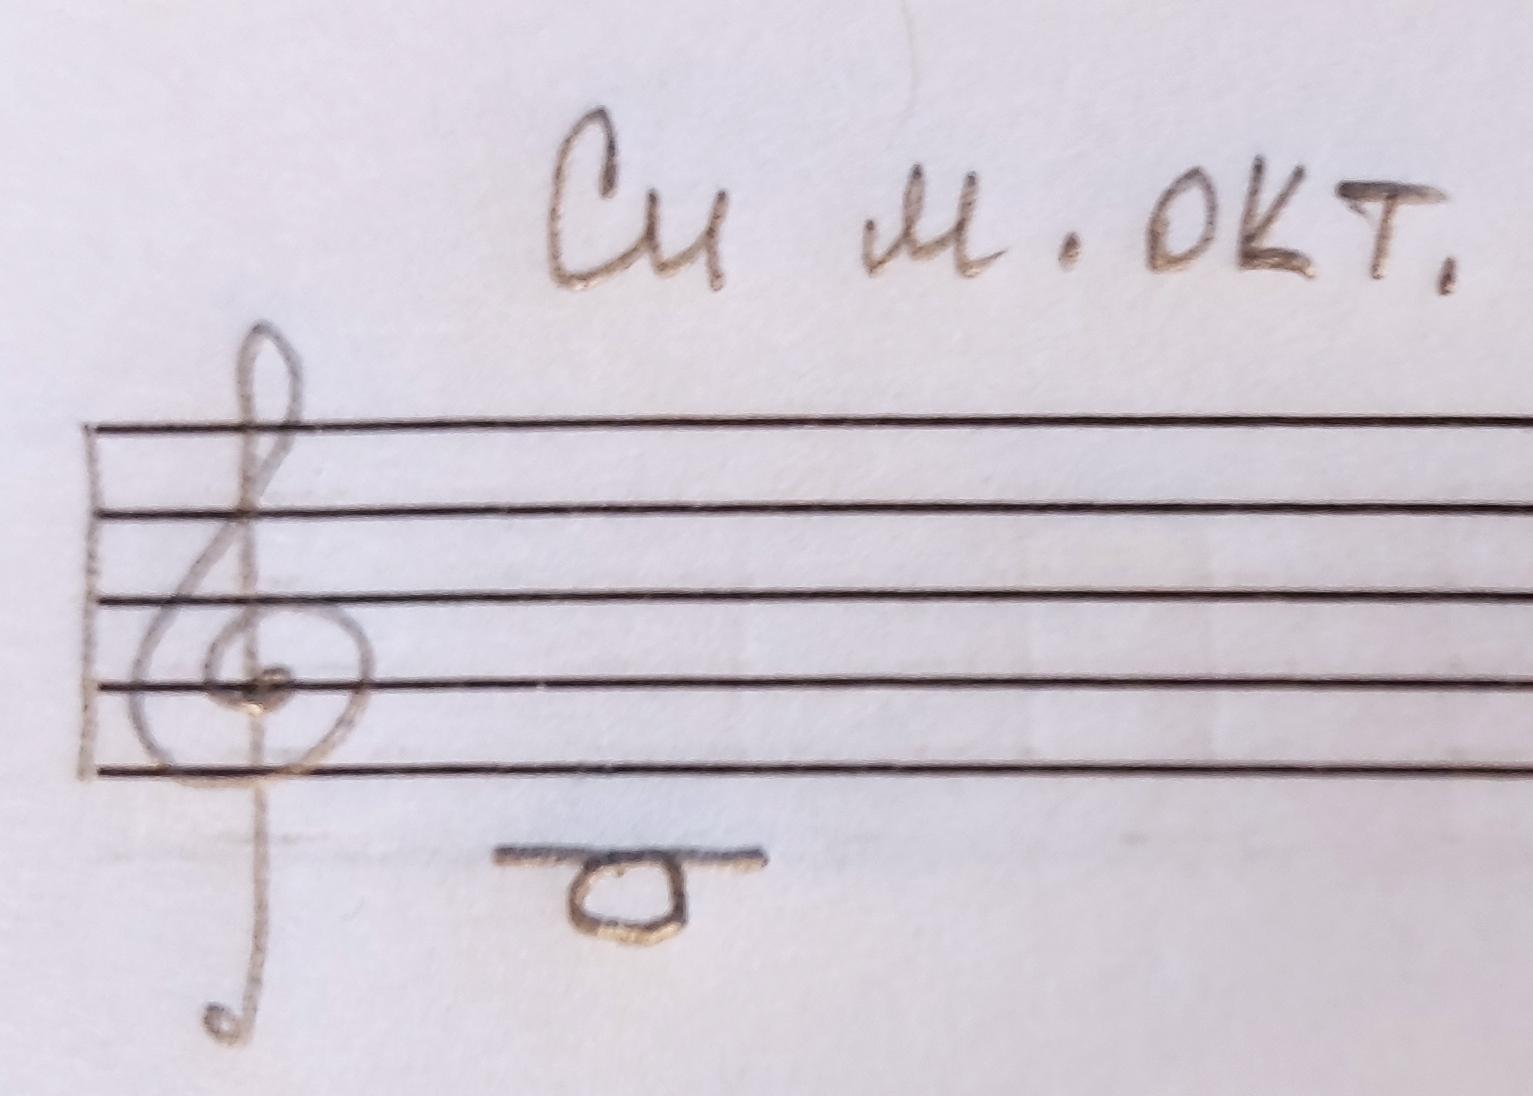 Си м. окт.